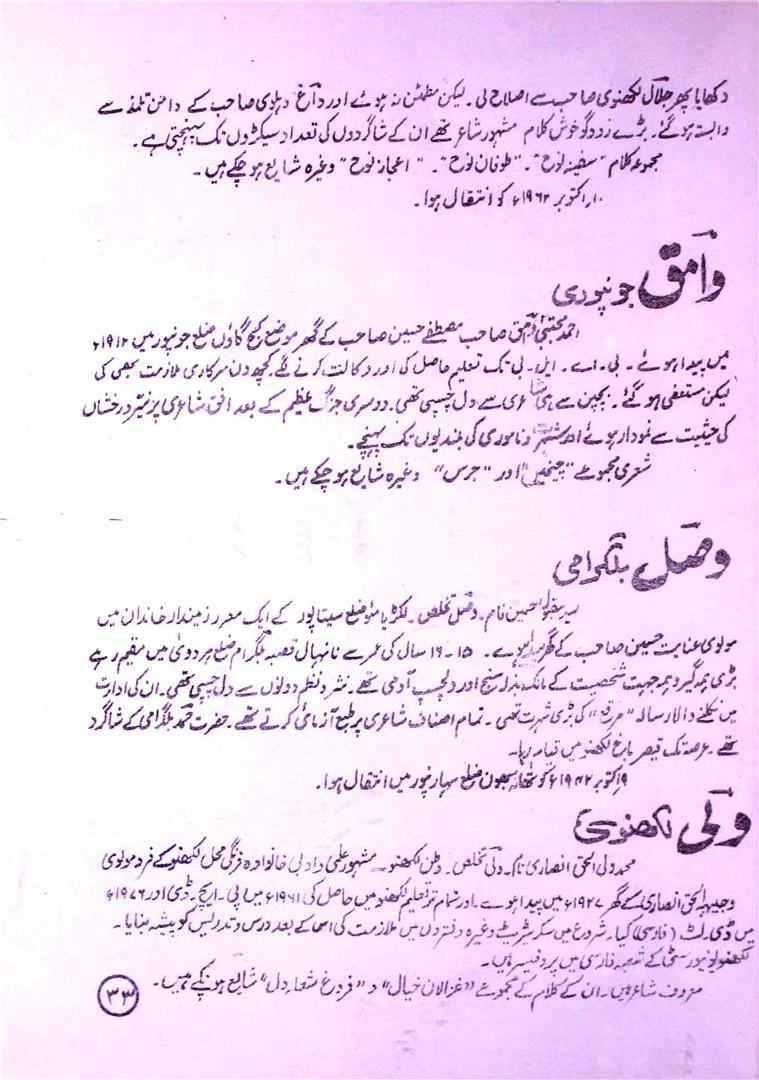 دکھایا پھر جلال لکھنوی صاحب سے اصلاح لی۔ لیکن مطمئن نہ ہوئے اور داغ دہلوی صاحب کے دامن تلمذ سے
وابستہ ہو گئے۔ بڑے زود گو خوش کلام مشہور شاعر تھے ان کے شاگردوں کی تعداد سیکڑوں تک پہنچتی ہے۔
مجموعہ کلام "سفینہ نوح"۔ "طوفان نوح"۔ "اعجاز نوح" وغیرہ شایع ہو چکے ہیں۔
۱۰ اکتوبر ۱۹۶۲ء کو انتقال ہوا۔
وامق جونپوری
احمد مجتبیٰ وامق صاحب مصطفےٰ حسین صاحب کے گھر موضع کجگاؤں ضلع جونپور میں ۱۹۱۲ء
میں پیدا ہوئے۔ بی۔اے۔ ایل۔بی تک تعلیم حاصل کی اور وکالت کرنے لگے کچھ دن سرکاری ملازمت بھی کی
لیکن مستعفی ہو گئے۔ بچپن سے ہی شاعری سے دل چسپی تھی۔ دوسری جنگ عظیم کے بعد افق شاعری پر نیّر درخشاں
کی حیثیت سے نمودار ہوئے اور شہرت و ناموری کی بلندیوں تک پہنچے۔
شعری مجموعے "چیخیں" اور "جرس" وغیرہ شایع ہو چکے ہیں۔
وصل بلگرامی
سید مقبول حسین نام۔ وصل تخلص۔ ضلع سیتاپور کے ایک معزز زمیندار خاندان میں
مولوی عنایت حسین صاحب کے گھر پیدا ہوے۔ ۱۵۔۱۶ سال کی عمر سے نانہال قصبہ بلگرام ضلع ہردوئی میں مقیم رہے
بڑی ہمہ گیر و ہمہ جہت شخصیت کے مالک بذلہ سنج اور دلچسپ آدمی تھے۔ نثر و نظم دونوں سے دل چسپی تھی۔ ان کی ادارت
میں نکلنے والا رسالہ "مرقع" کی بڑی شہرت تھی۔ تمام اصناف شاعری پر طبع آزمائی کرتے تھے۔ حضرت حمد بلگرامی کے شاگرد
تھے۔ عرصہ تک قیصر باغ لکھنو میں قیام رہا۔
۹ اکتوبر ۱۹۴۲ء کو تھانہ بھون ضلع سہارنپور میں انتقال ہوا۔
ولی لکھنوی
محمد ولی الحق انصاری نام۔ ولی تخلص۔ وطن لکھنو۔ مشہور علمی و ادبی خانوادہ فرنگی محل لکھنو کے فرد مولوی
وجیہہ الحق انصاری کے گھر ۱۹۲۷ء میں پیدا ہوے۔ اور تمام تر تعلیم لکھنو میں حاصل کی ۱۹۶۱ء میں پی۔ایچ۔ڈی اور ۱۹۷۶ء
میں ڈی۔لٹ (فارسی) کیا۔ شروع میں سکریٹریٹ وغیرہ دفتروں میں ملازمت کی اس کے بعد درس و تدریس کو پیشہ بنایا۔
لکھنو یونیورسٹی کے شعبہ فارسی میں پروفیسر ہیں۔
معروف شاعر ہیں۔ ان کے کلام کے مجموعے "غزالان خیال" و "فروغ شعلہ دل" شایع ہو چکے ہیں۔
۳۳